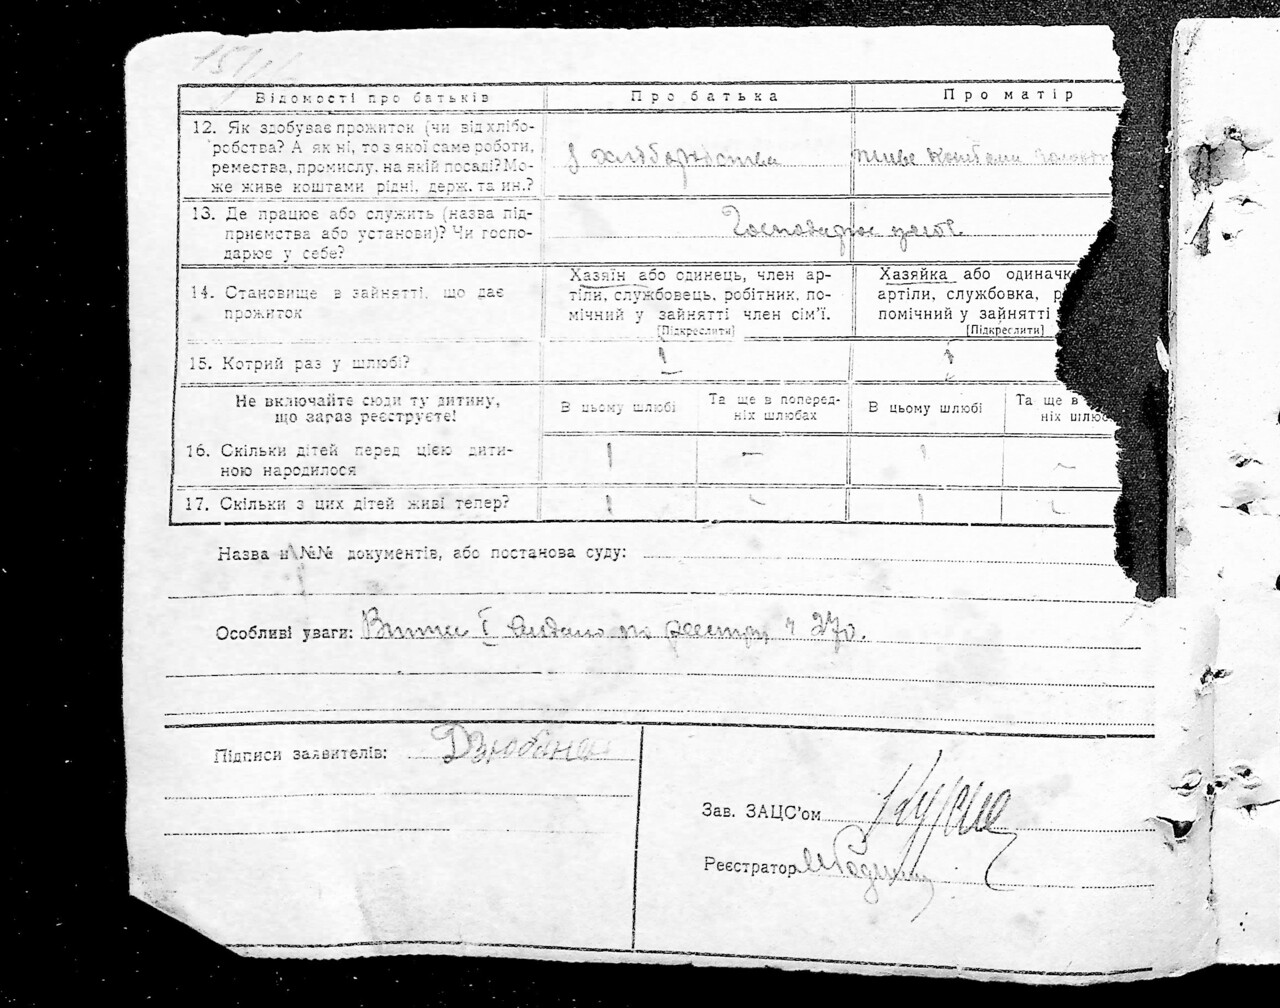 Відомості про батьків
Про батька
Про матір
12. Як здобуває прожиток (чи від хлібо-
робства? А як ні, то з якої саме роботи,
ремества, промислу, на якій посаді? Мо-
же живе коштами рідні, держ. та ин.?
з хліборобства
живе коштами
13. Де працює або служить (назва під-
приємства або установи)? Чи госпо-
дарює у себе?
Господарює у себе
14. Становище в зайнятті, що дає
прожиток
Хазяїн або одинець, член ар-
тіли, службовець, робітник, по-
мічний у зайнятті член сім'ї.
[Підкреслити]
Хазяйка або одиначк
артіли, службовка, р
помічний у зайнятті
[Підкреслити]
15. Котрий раз у шлюбі?
1
1
Не включайте сюди ту дитину,
що зараз реєструєте!
В цьому шлюбі
Та ще в поперед-
ніх шлюбах
В цьому шлюбі
Та ще в
ніх шлюб
16. Скільки дітей перед цією дити-
ною народилося
1
-
1
-
17. Скільки з цих дітей живі тепер?
1
-
1
-
Назва и №№ документів, або постанова суду:
Особливі уваги: Витяг I видано по реєстру ч 270.
Підписи заявителів: Дзюбано
Зав. ЗАЦС'ом
Реєстратор